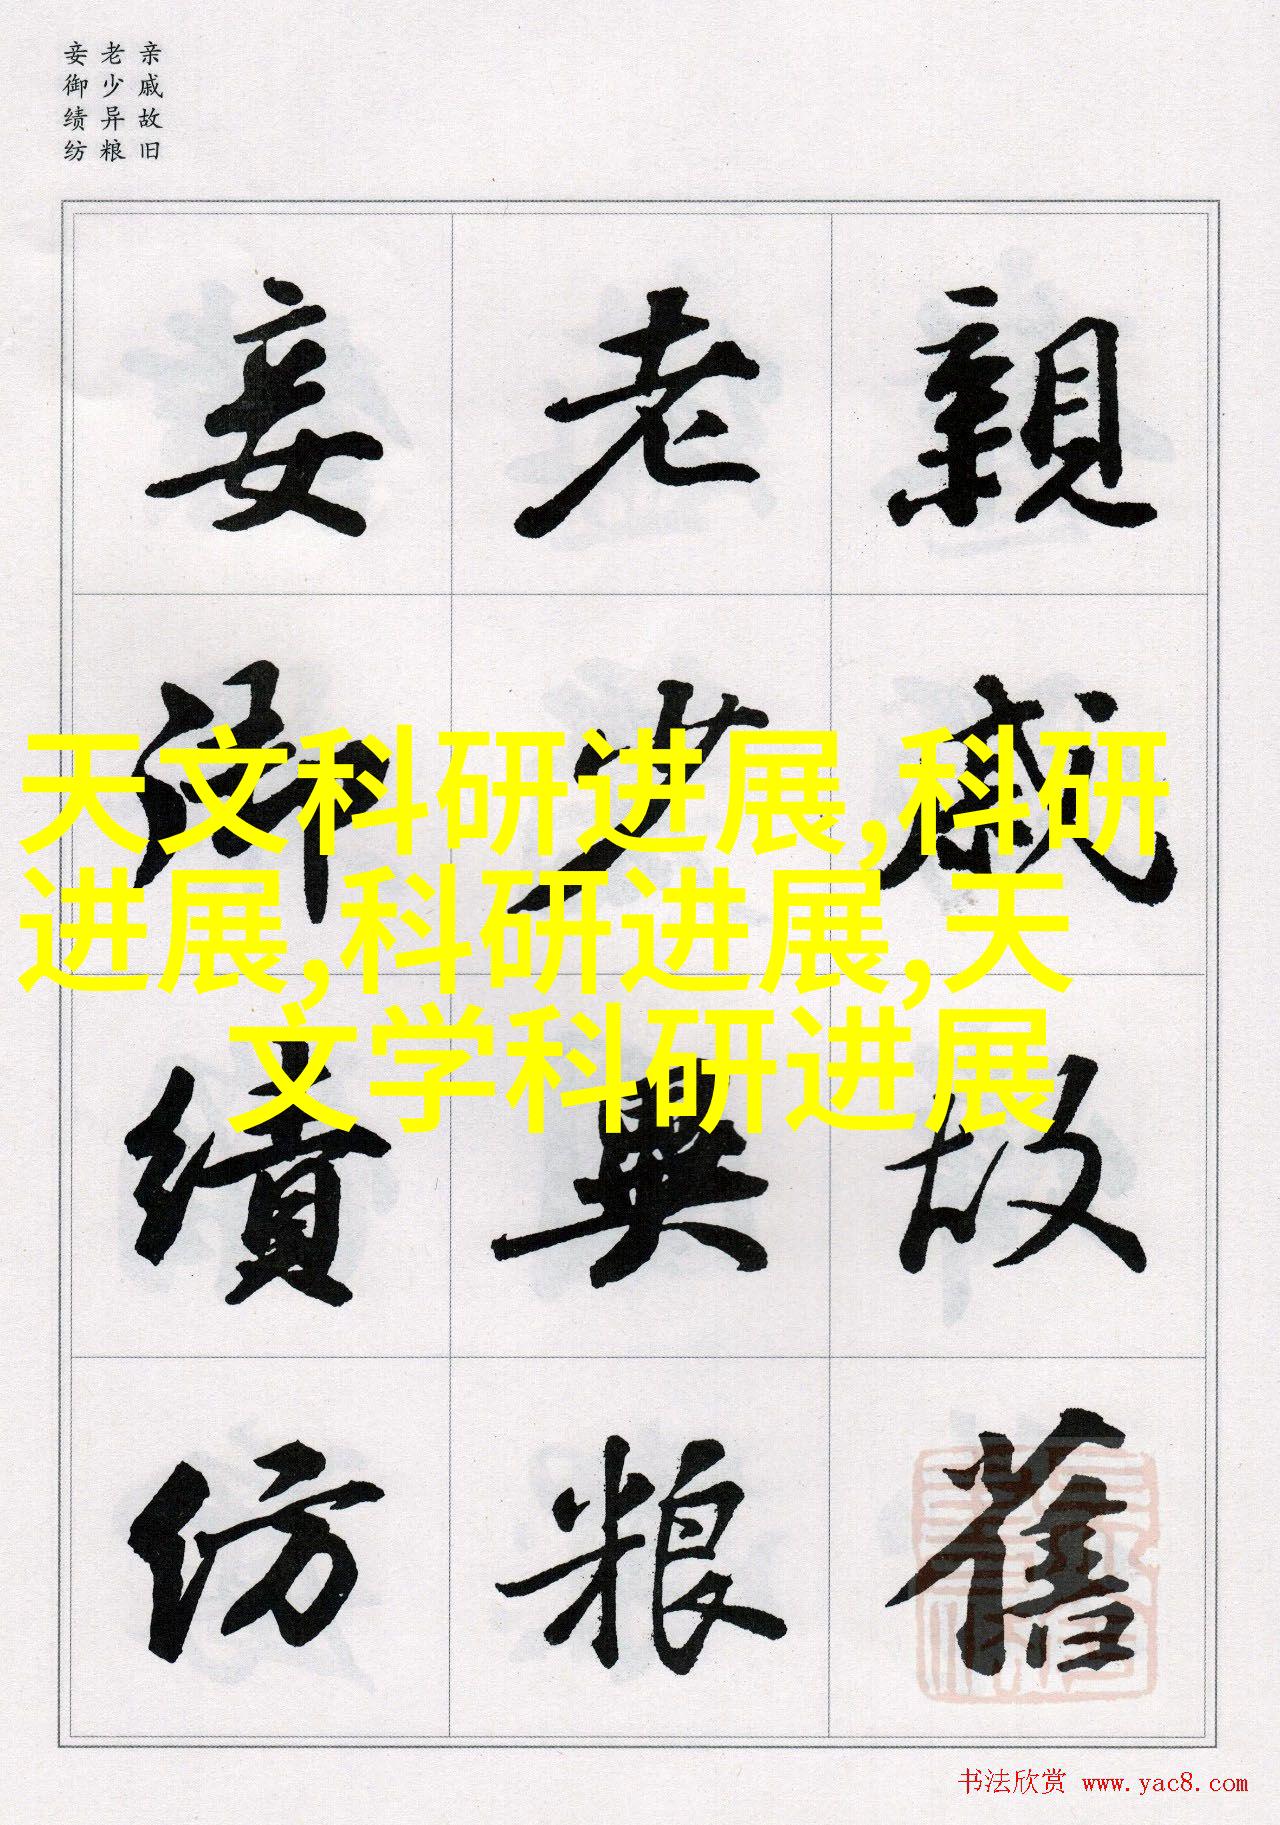 亲戚故旧
老少异粮
妾御绩纺
親戚故舊
老少異粮
妾御績紡
天文科研进展,科研
进展,科研进展,天
文学科研进展
书法欣赏 www.yac8.com